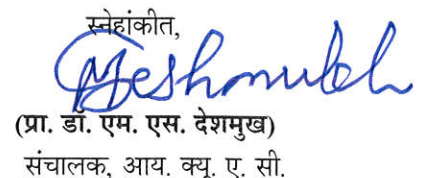 स्नेहांकीत,
Meshmukh
(प्रा. डॉ. एम. एस. देशमुख)
संचालक, आय. क्यू. ए. सी.